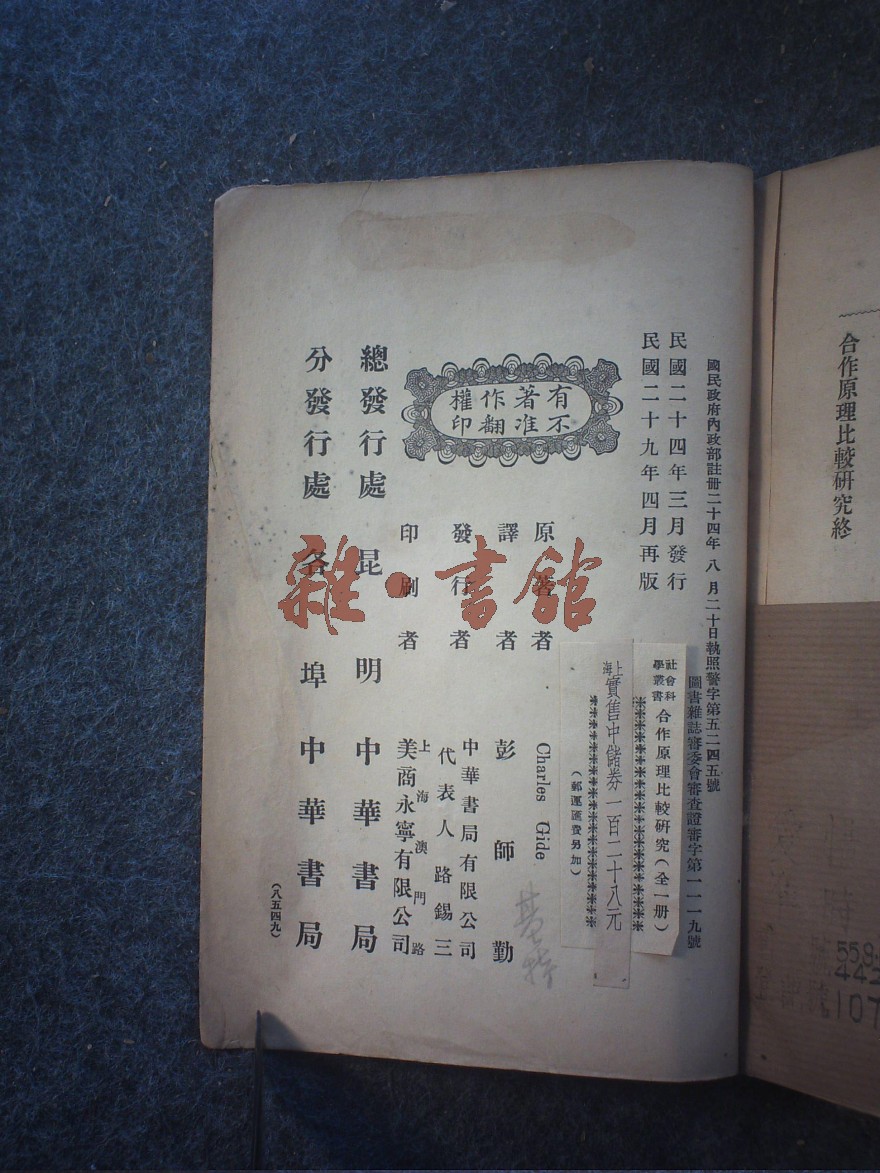 合作原理比較研究終
國民政府內政部註冊二十四年八月二十日執照警字第五二四五號
圖書雜誌審委會審查證審字第一一一九號
民國二十四年三月發行
民國二十九年四月再版
社會科學叢書
合作原理比較研究(全一册)
上海
實售中儲券一百二十八元
(郵運匯費另加)
有著作權
不准翻印
原著者 Charles Gide
譯者 彭師勤
發行者 中華書局有限公司
代表人路錫三
印刷者 上海澳門路
美商永寧有限公司
總發行處 昆明中華書局
分發行處 各埠中華書局
(八五四九)
雜·書館
107